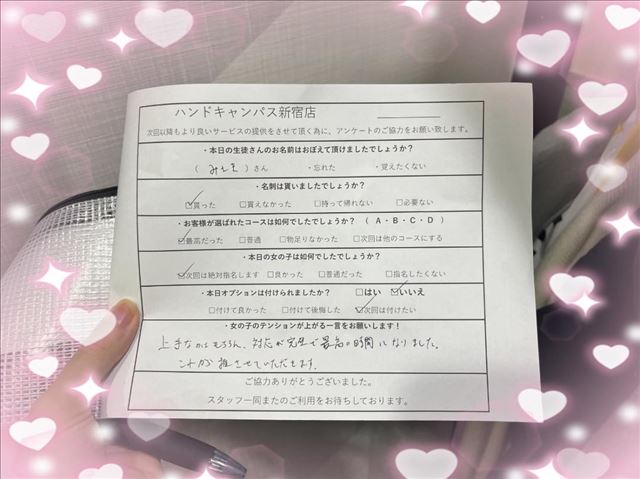 ハンドキャンパス新宿店
次回以降もより良いサービスの提供をさせて頂く為に、アンケートのご協力をお願い致します。
・本日の生徒さんのお名前はおぼえて頂けましたでしょうか?
( )さん ・忘れた ・覚えたくない
・名刺は貰いましたでしょうか?
☑貰った □貰えなかった □持って帰れない □必要ない
・お客様が選ばれたコースは如何でしたでしょうか? ( A・B・C・D )
☑最高だった □普通 □物足りなかった □次回は他のコースにする
・本日の女の子は如何でしたでしょうか?
☑次回は絶対指名します □良かった □普通だった □指名したくない
・本日オプションは付けられましたか? □はい ☑いいえ
□付けて良かった □付けて後悔した ☑次回は付けたい
・女の子のテンションが上がる一言をお願いします!
上手なのはもちろん、対応が完璧で最高の時間になりました。
推させていただきます。
ご協力ありがとうございました。
スタッフ一同またのご利用をお待ちしております。